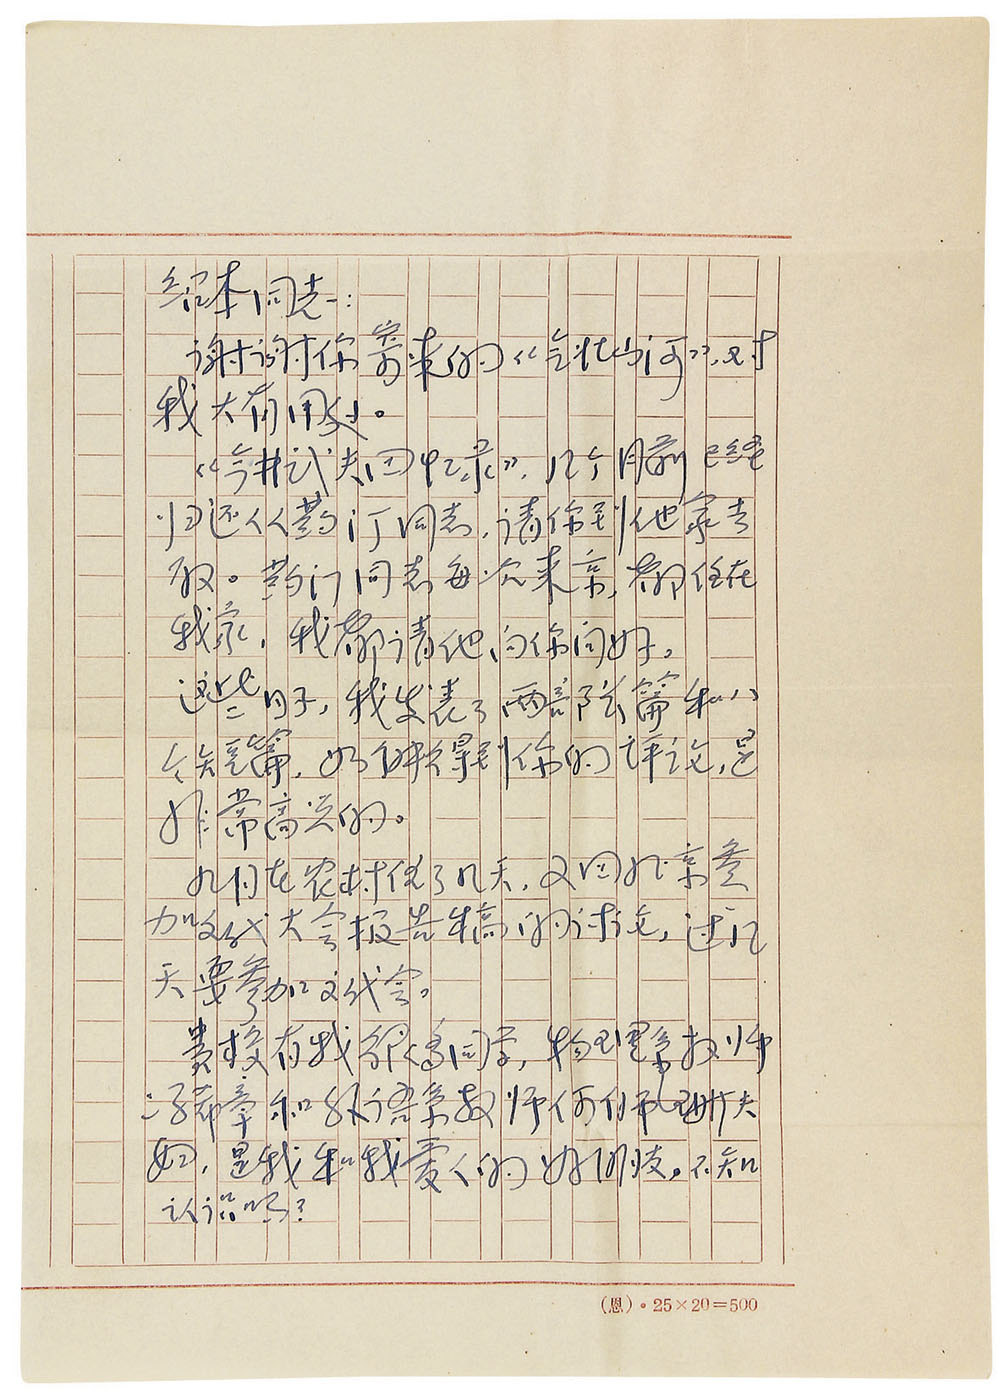 绍本同志：
谢谢你寄来的《气壮山河》，对
我大有用处。
《今井武夫回忆录》，几个月前已经
归还从药汀同志，请你到他家去
取。药汀同志每次来京，都住在
我家，我都请他向你问好。
这些日子，我发表了两部长篇和八
个短篇，如能得到你的评论，是
非常高兴的。
九月在农村住了几天，又回北京参
加文代大会报告稿的讨论，过几
天要参加文代会。
贵校有我很多同学，物理系教师
冯希章和外语系教师何佩珊夫
妇，是我和我爱人的好朋友。不知
认识吗？
（恩）·25×20＝500